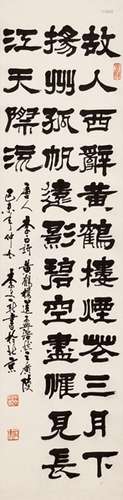 故人西辭黃鶴樓煙花三月下
揚州孤帆遠影碧空盡惟見長
江天際流
唐人李白詩黃鶴樓送孟浩然之廣陵
己未年仲冬李書於北京